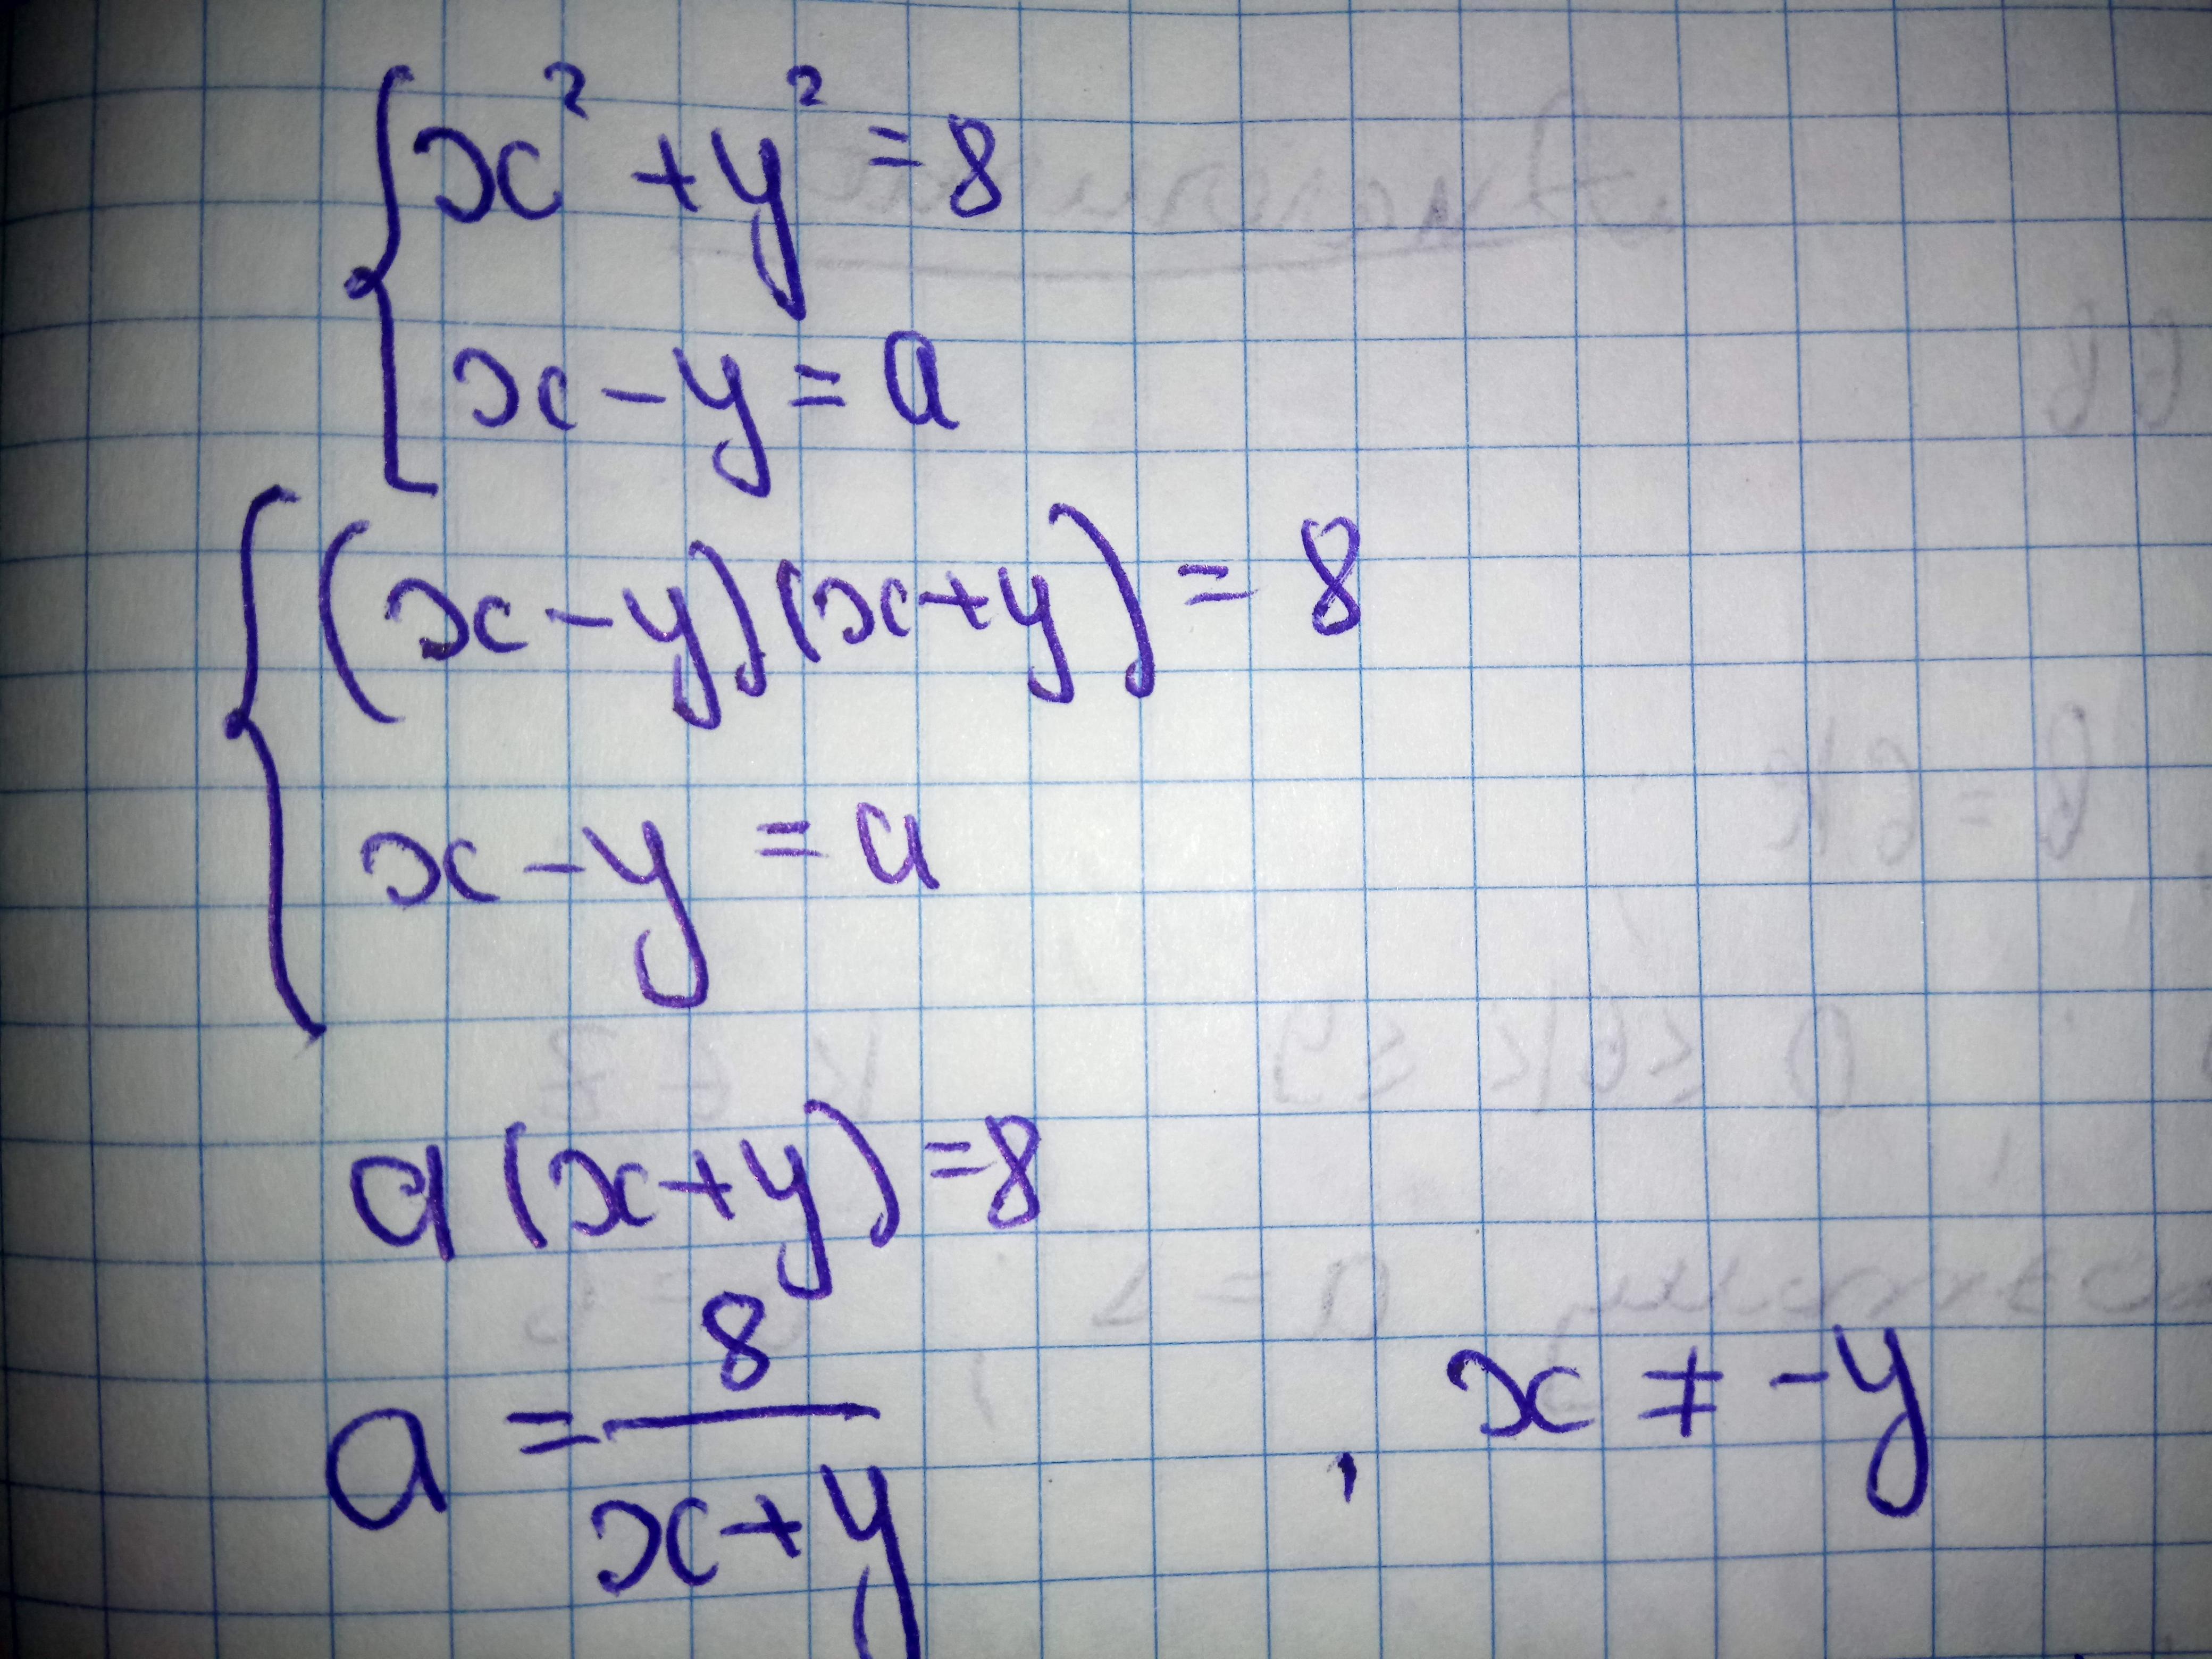 x² + y² = 8
x - y = a
(x - y)(x + y) = 8
x - y = a
a (x + y) = 8
a = 8/(x + y) , x ≠ -y